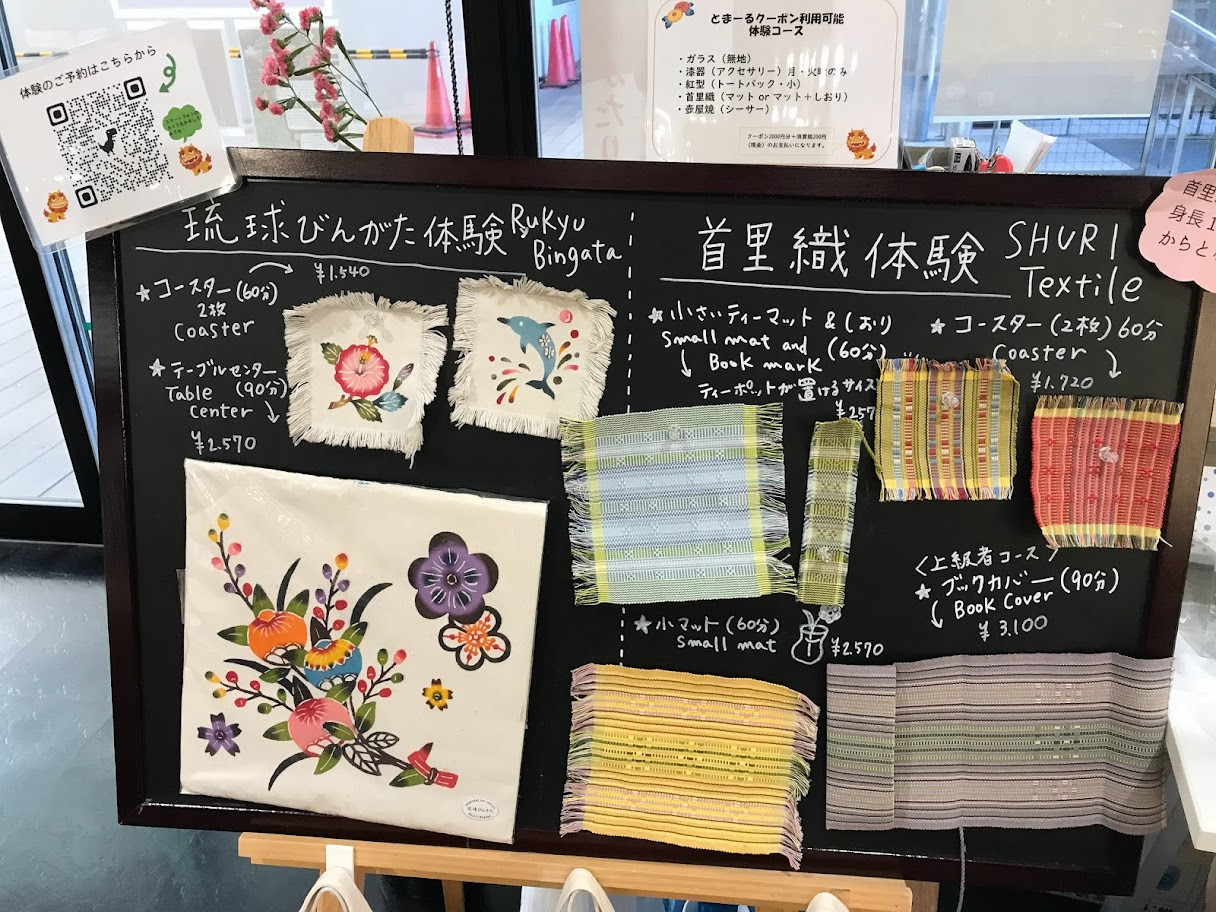 体験のご予約はこちらから
とまーるクーポン利用可能
体験コース
・ガラス（無地）
・漆器（アクセサリー）月・火曜のみ
・紅型（トートバック・小）
・首里織（マット or マット＋しおり）
・壺屋焼（シーサー）
クーポン2000円分＋消費税200円
（現金）のお支払いになります。
琉球びんがた体験 Ryukyu
Bingata
★コースター (60分)
2枚
Coaster
¥1.540
★テーブルセンター
Table (90分)
center
¥2.570
首里織体験 SHURI
Textile
★小さいティーマット & しおり
Small mat and (60分)
Book mark
ティーポットが置けるサイズ
¥257
★コースター (2枚) 60分
Coaster
¥1.720
★小マット (60分)
Small mat
¥2570
〈上級者コース〉
★ブックカバー (90分)
Book Cover
¥3.100
首里
身長1
からと